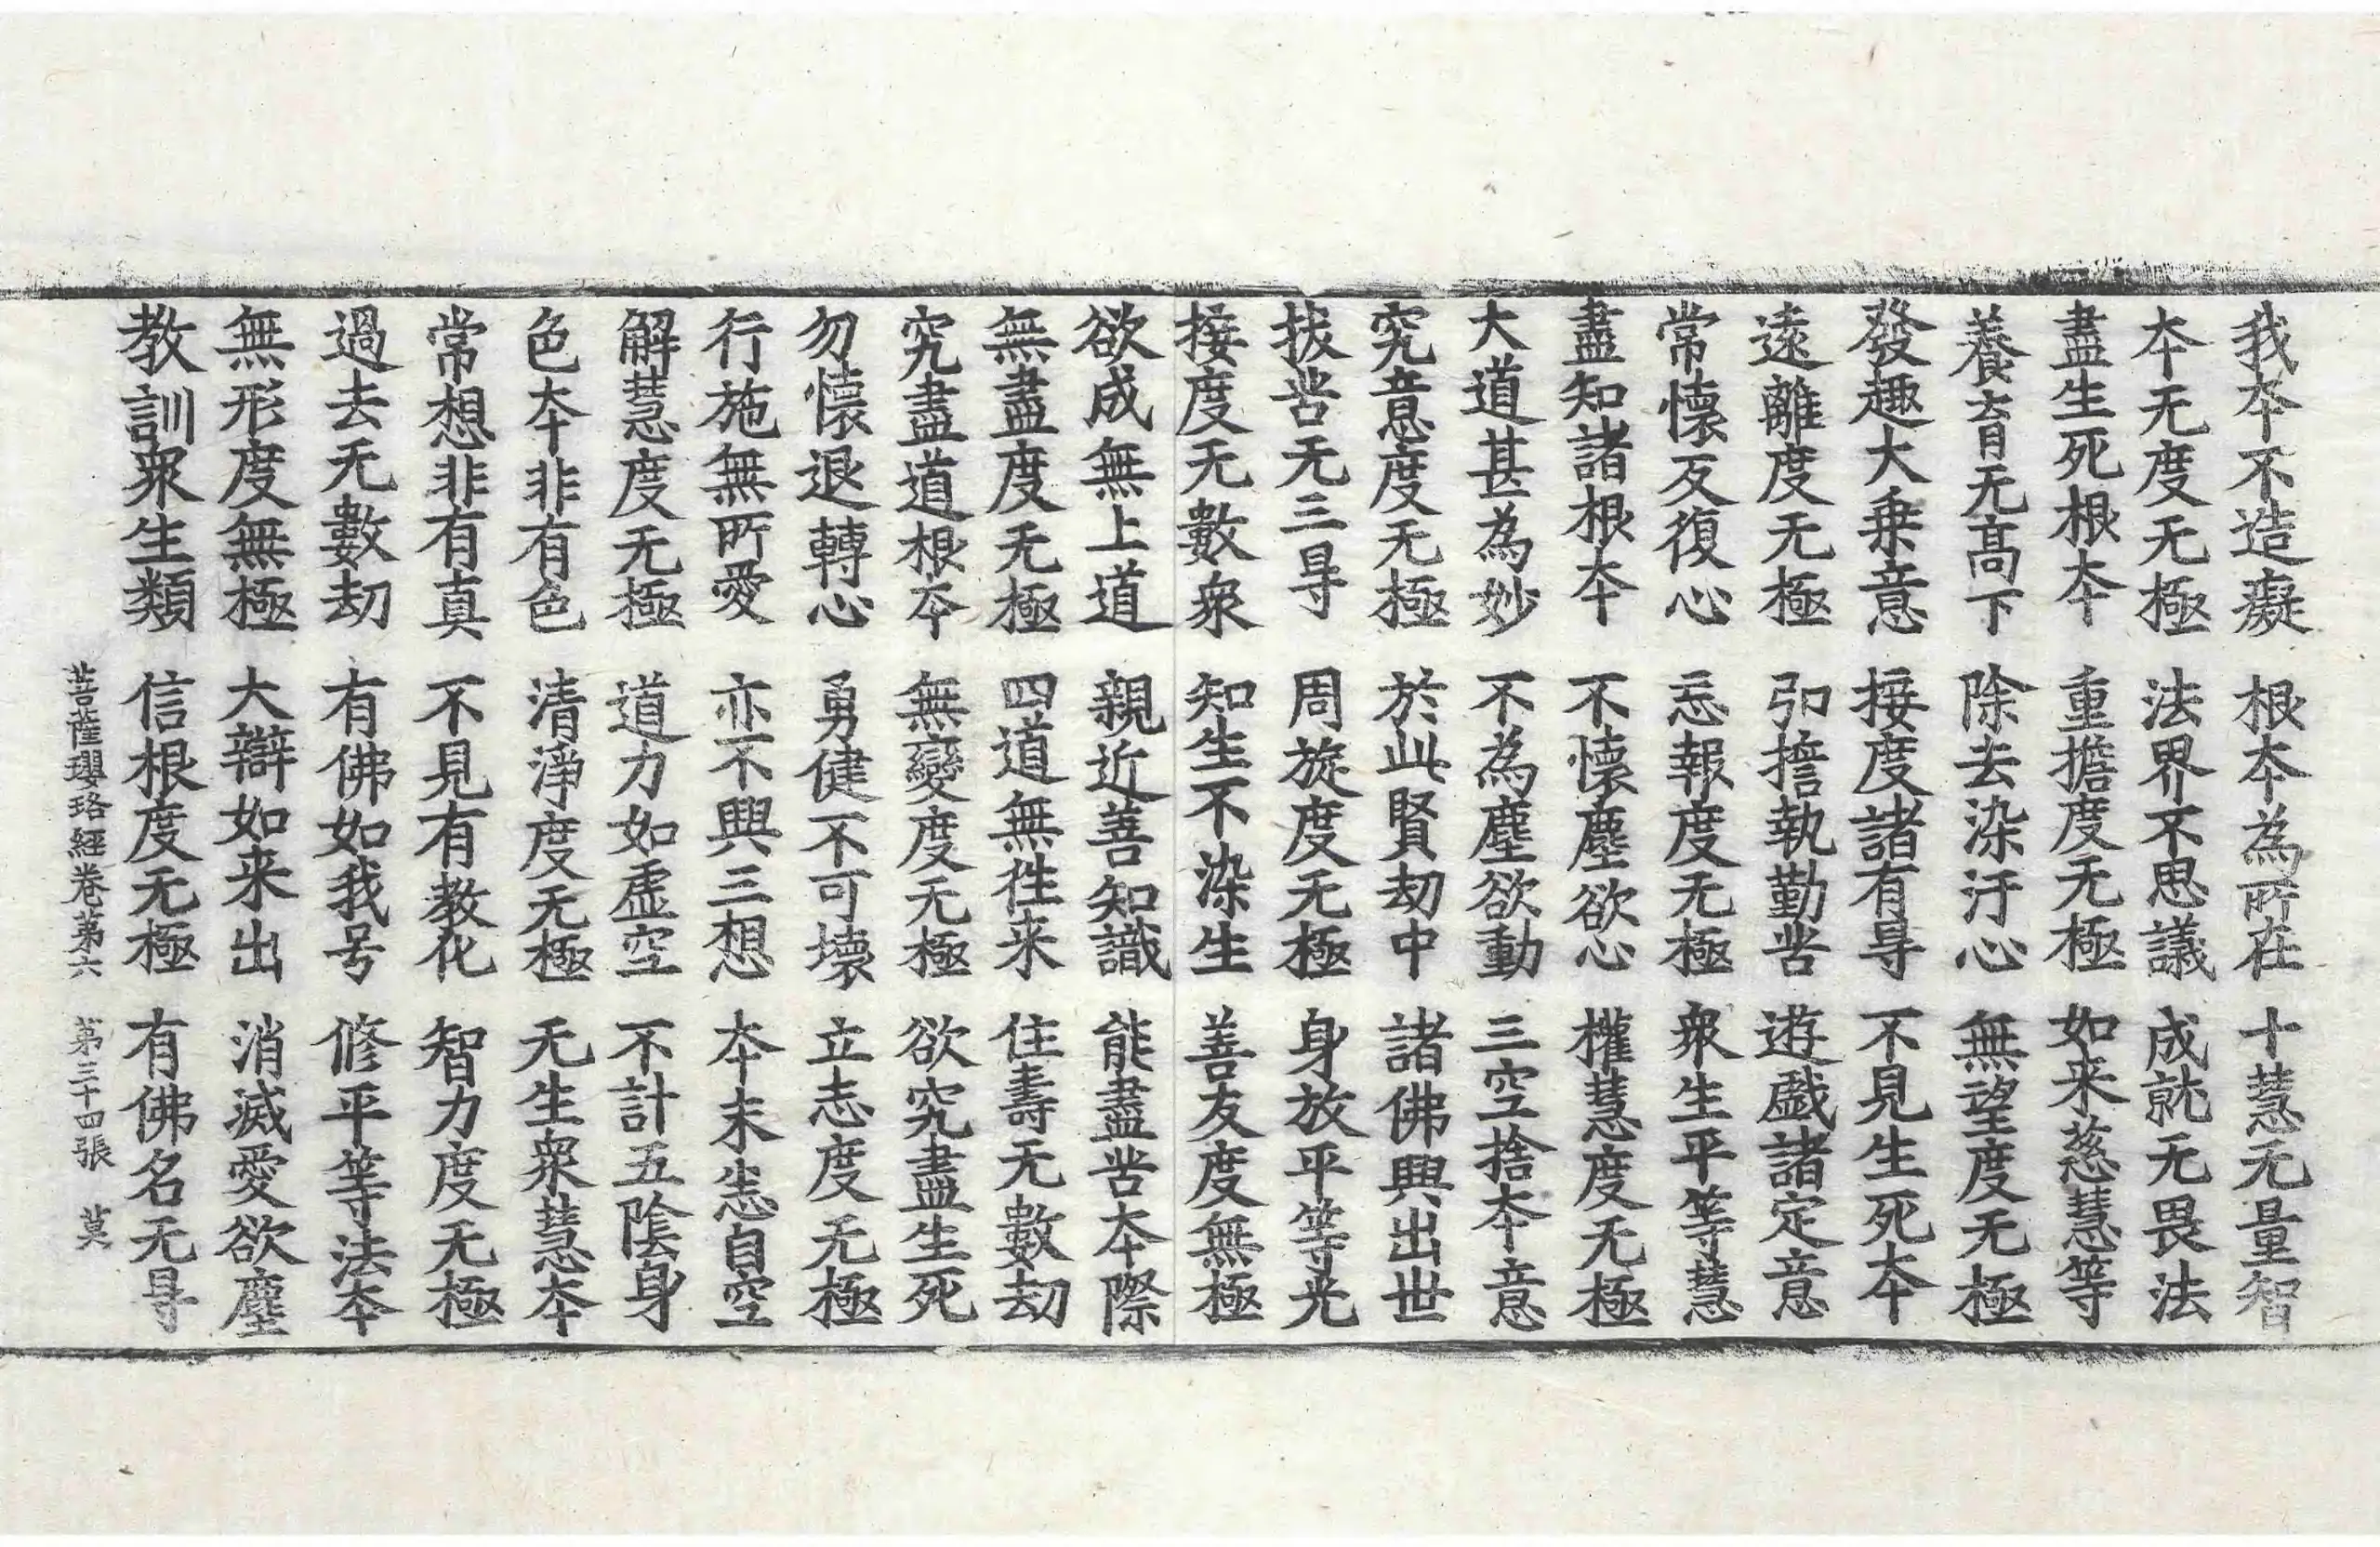 我夲不造癡 根夲為所在 十慧无量智
夲无度无極 法界不思議 成就无畏法
盡生死根夲 重擔度无極 如来慈慧等
養育无高下 除去染汙心 無望度无極
發趣大乗意 接度諸有㝵 不見生死夲
遠離度无極 卽擔執勤苦 遊戯諸定意
常懷反復心 忘報度无極 衆生平等慧
盡知諸根夲 不懷塵欲心 權慧度无極
大道甚為妙 不為塵欲動 三空捨夲意
究意度无極 於此賢劫中 諸佛興出世
拔苦无三㝵 周旋度无極 身放平等光
接度无數衆 知生不染生 善友度無極
欲成無上道 親近善知識 能盡苦夲際
無盡度无極 四道無徃来 住壽无數劫
究盡道根夲 無變度无極 欲究盡生死
勿懷退轉心 勇健不可壞 立志度无極
行施無所愛 亦不興三想 夲末悉自空
解慧度无極 道力如虚空 不計五陰身
色夲非有色 清淨度无極 无生衆慧夲
常想非有真 不見有教化 智力度无極
過去无數劫 有佛如我号 修平等法夲
無形度無極 大辯如来出 消滅愛欲塵
教訓衆生類 信根度无極 有佛名无㝵
菩薩瓔珞經卷第六 第三十四張 莫